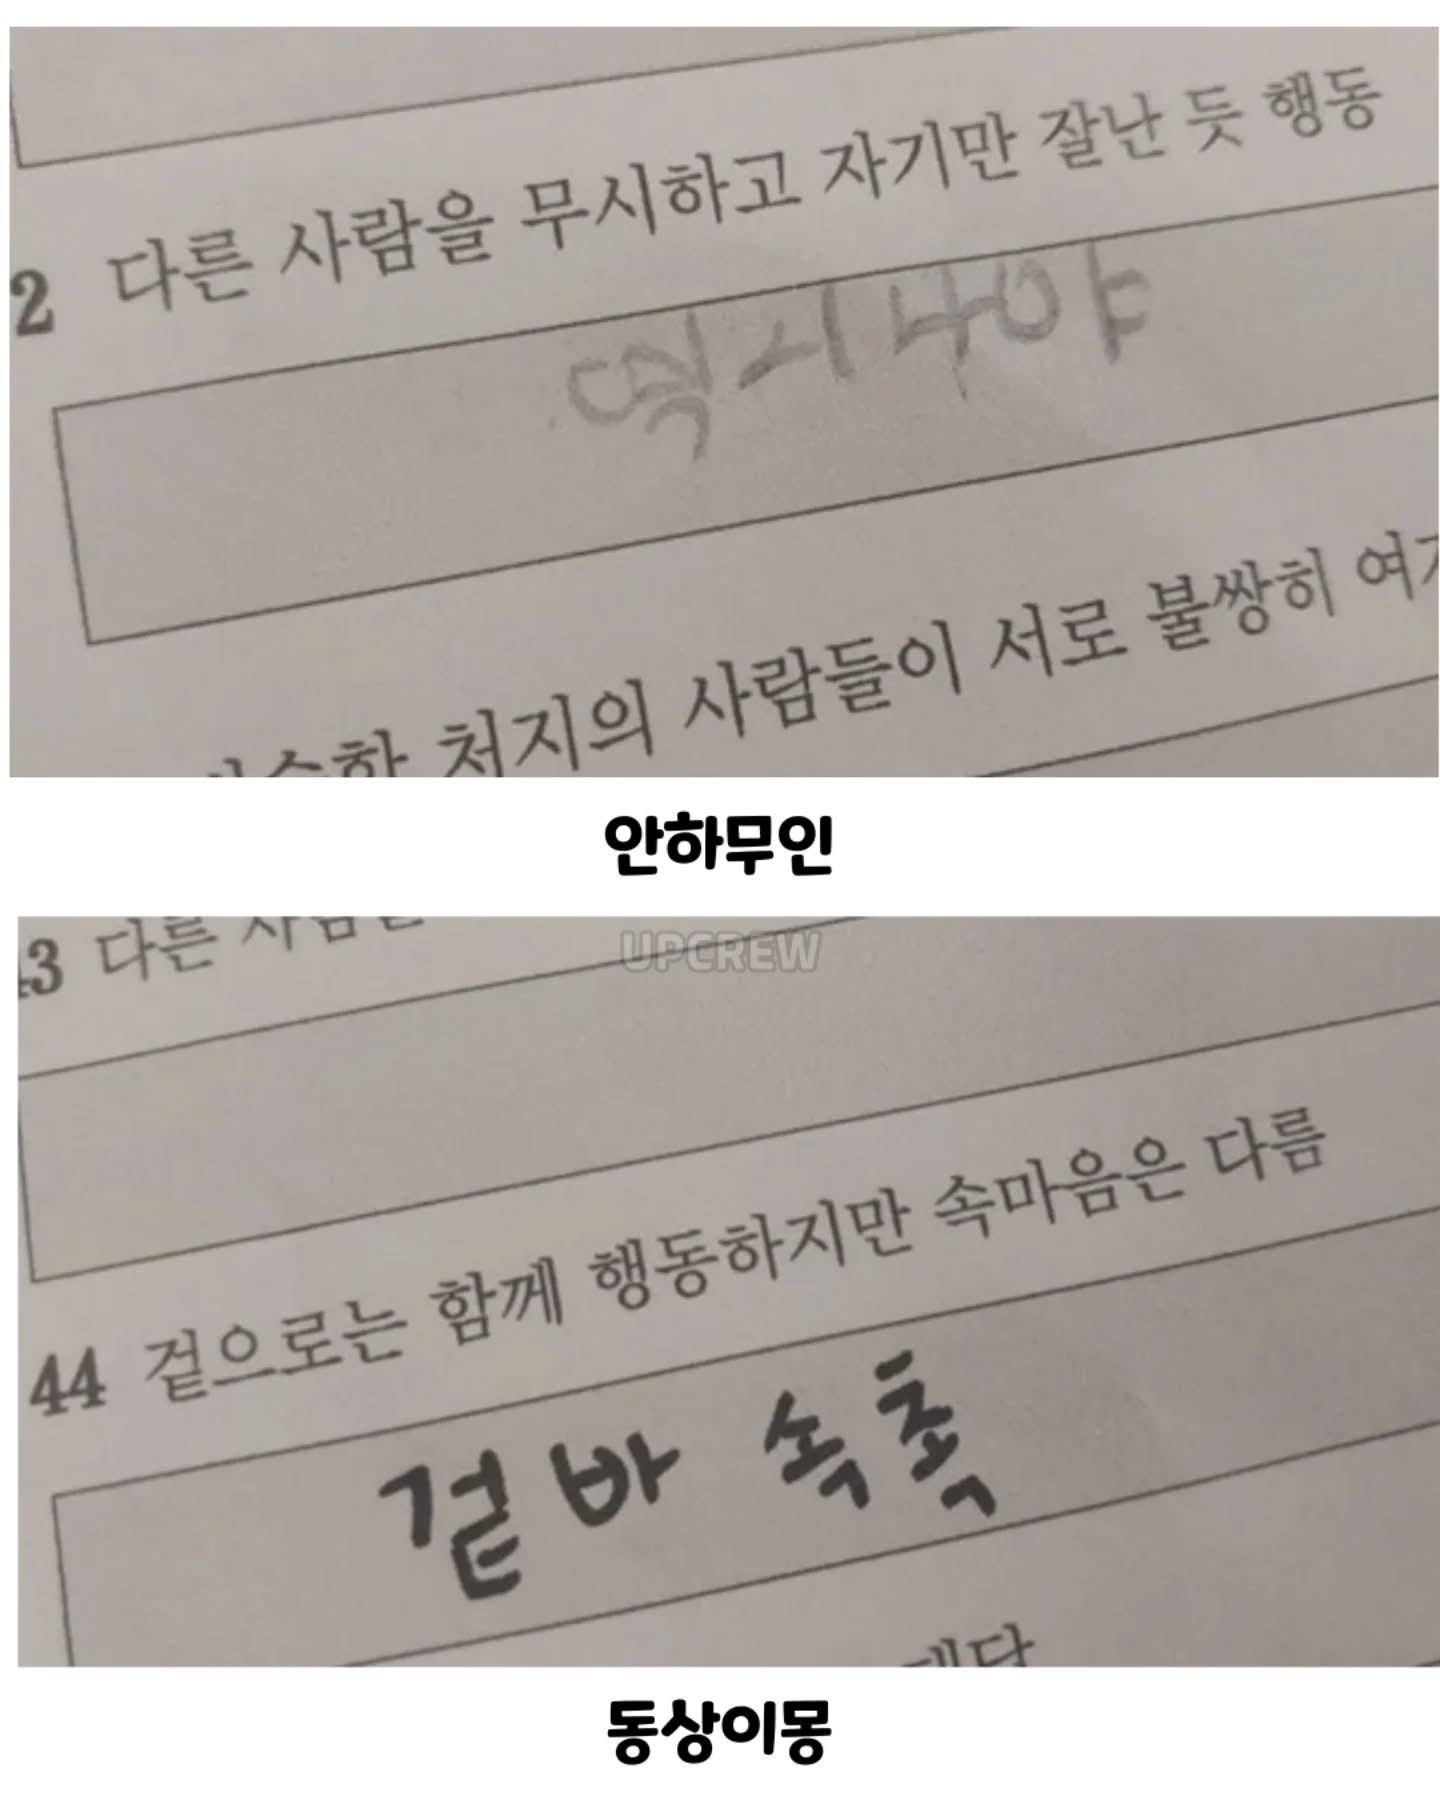 2 다른 사람을 무시하고 자기만 잘난 듯 행동
역시나야
처지의 사람들이 서로 불쌍히
안하무인
UPCREW
3 다른
44 겉으로는 함께 행동하지만 속마음은 다름
겉바 속촉
동상이몽